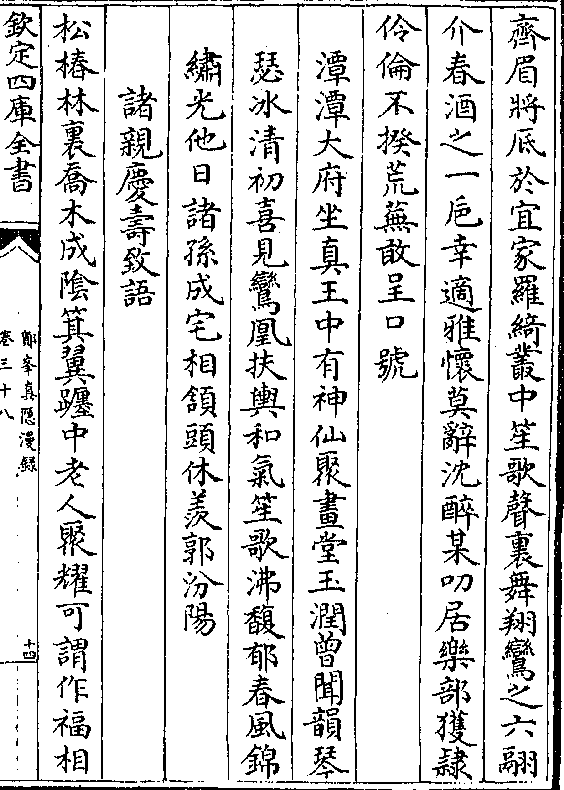 齊眉將厎於宜家羅綺叢中笙歌聲裏舞翔鸞之六翮
介春酒之一巵幸適雅懷莫辭沈醉某叨居樂部獲隷
伶倫不揆荒蕪敢呈口號
潭潭大府坐真王中有神仙聚畫堂玉潤曾聞韻琴
瑟冰清初喜見鸞凰扶輿和氣笙歌沸馥郁春風錦
繡光他日諸孫成宅相頷頭休羡郭汾陽
諸親慶壽致語
松椿林裏喬木成陰箕翼躔中老人聚耀可謂作福相
欽定四庫全書
鄮峯真隱漫録
卷三十八
十四